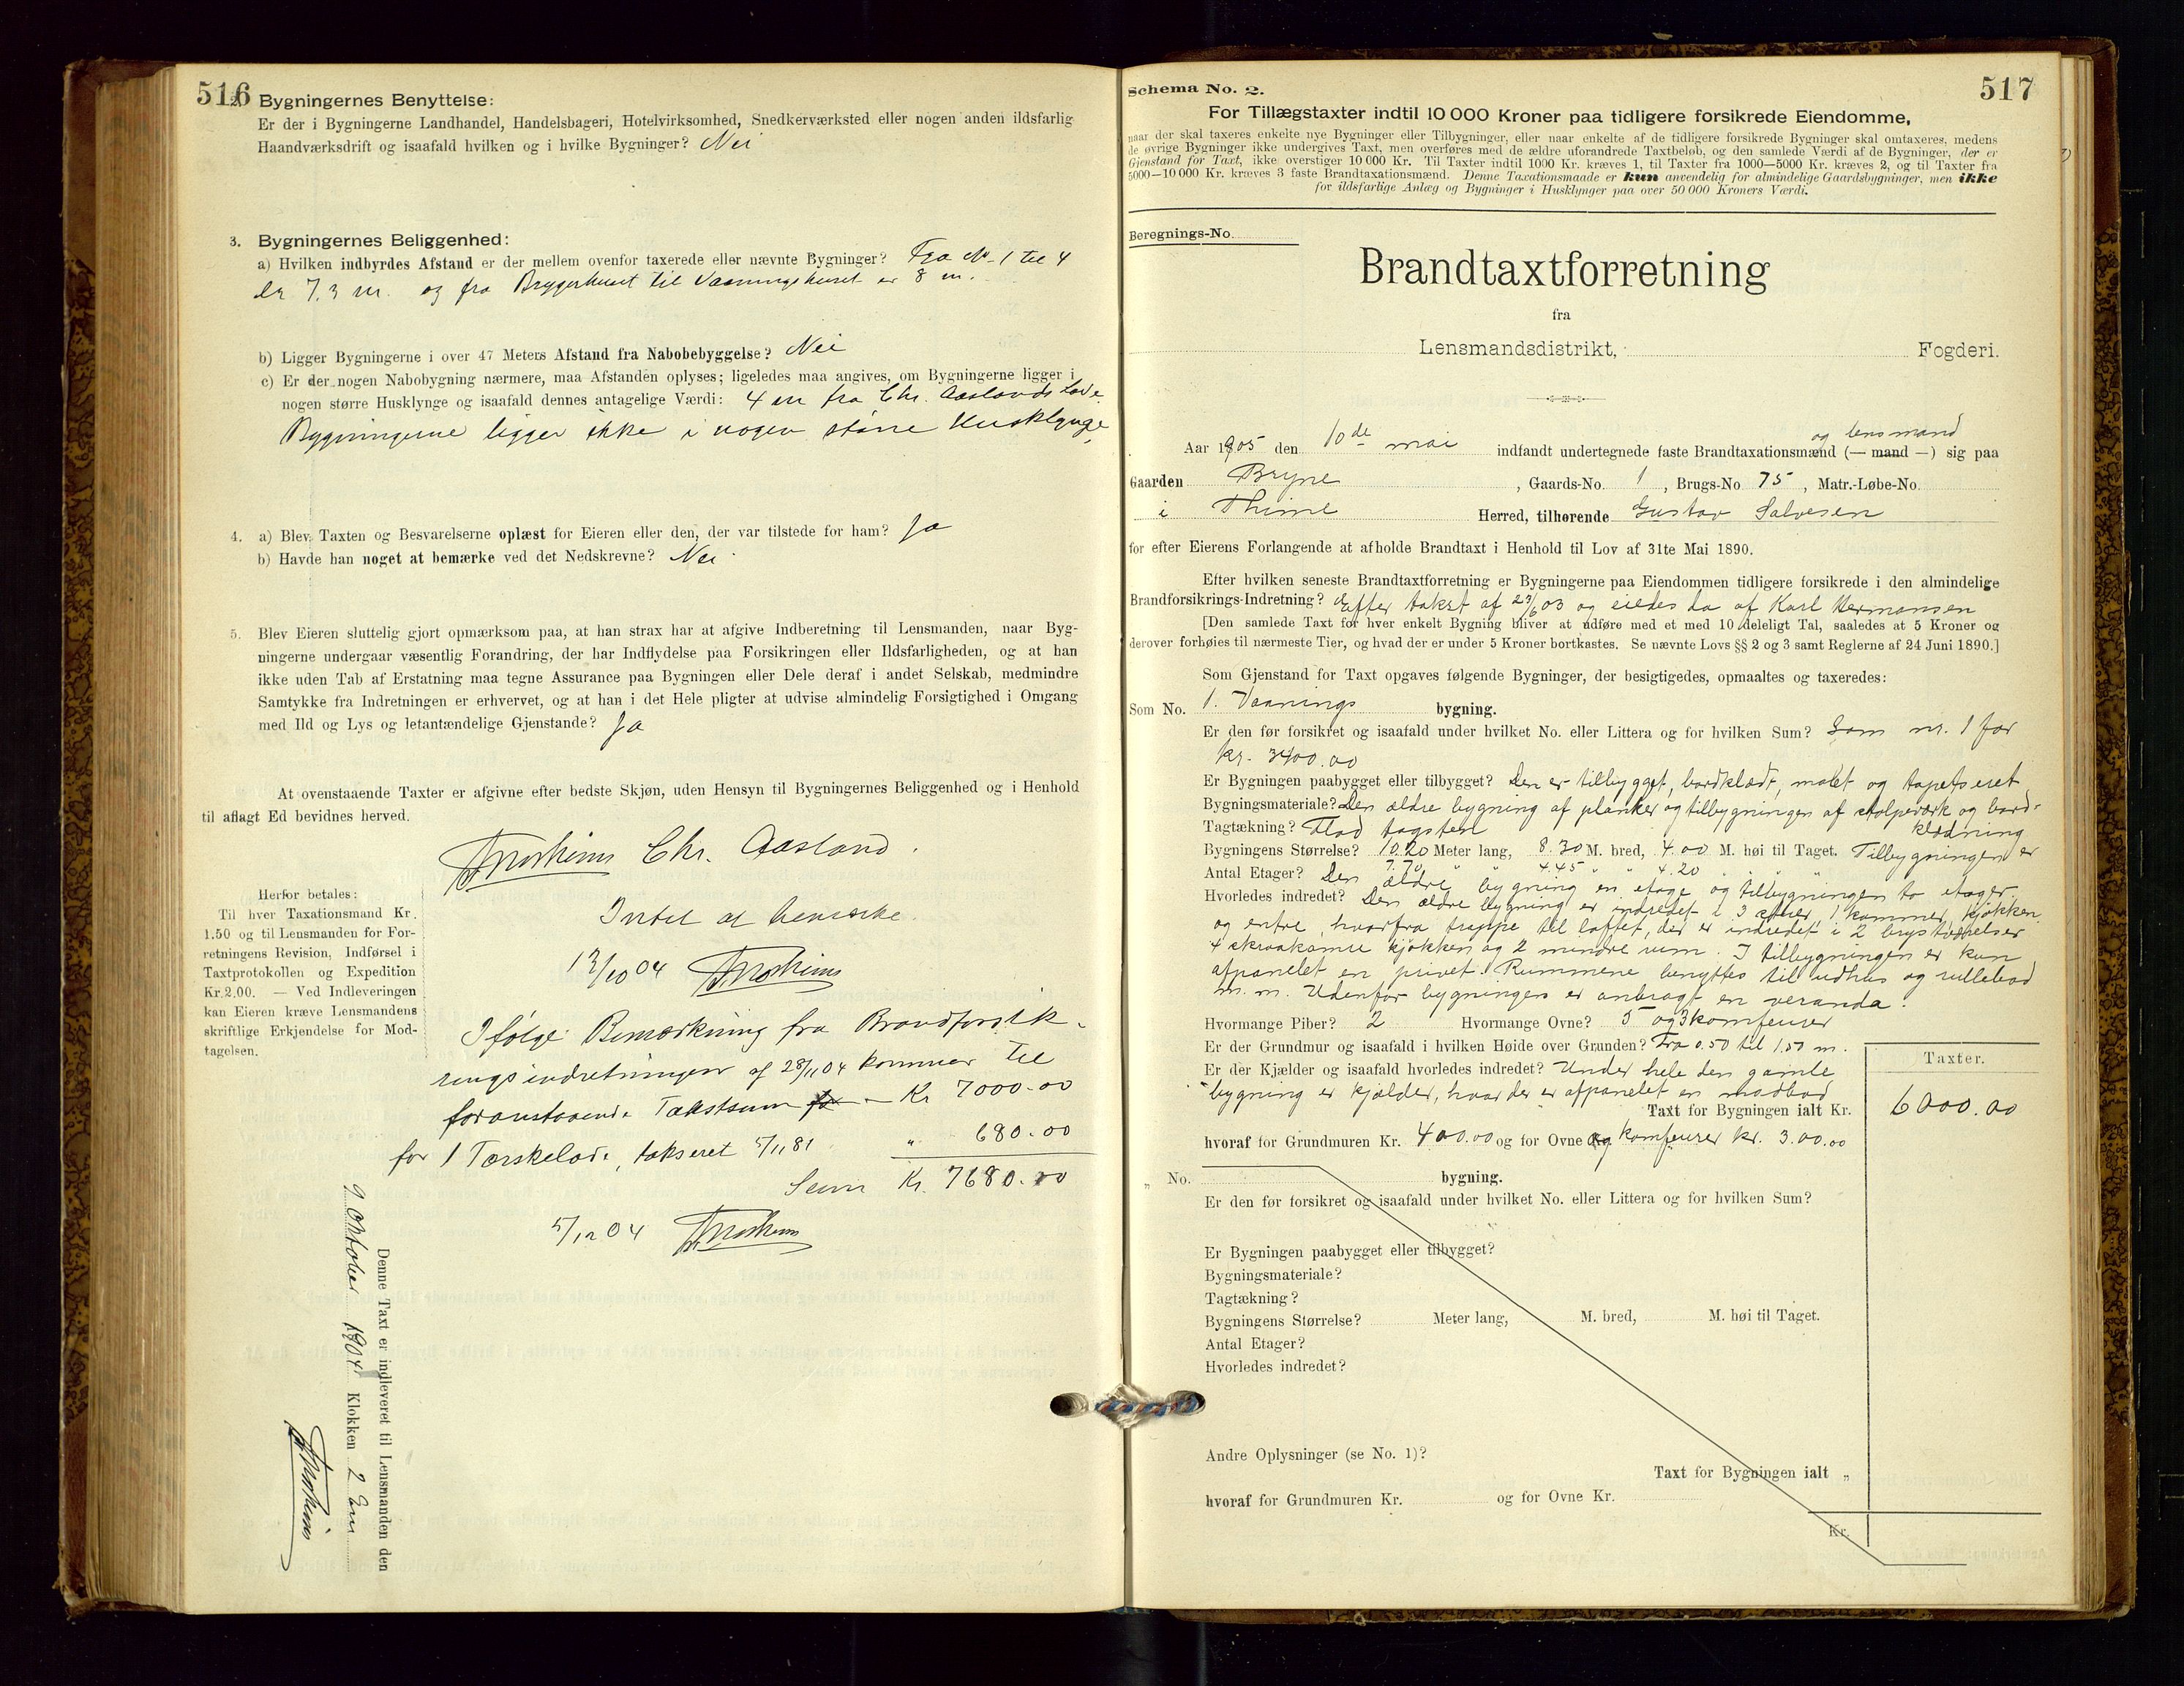 516
2. Bygningernes Benyttelse:
Er der i Bygningerne Landhandel, Handelsbageri, Hotelvirksomhed, Snedkerværksted eller nogen anden ildsfarlig
Haandværksdrift og isaafald hvilken og i hvilke Bygninger? Nei
3. Bygningernes Beliggenhed:
a) Hvilken indbyrdes Afstand er der mellem ovenfor taxerede eller nævnte Bygninger? Fra No 1 til 4
er 7,3 m. og fra Bryggerhuset til Vaaningshuset er 8 m.
b) Ligger Bygningerne i over 47 Meters Afstand fra Nabobebyggelse? Nei
c) Er der nogen Nabobygning nærmere, maa Afstanden oplyses; ligeledes maa angives, om Bygningerne ligger i
nogen større Husklynge og isaafald dennes antagelige Værdi: 4 m fra Chr. Aaslands Lade.
Bygningerne ligger ikke i nogen større Husklynge.
4. a) Blev Taxten og Besvarelserne oplæst for Eieren eller den, der var tilstede for ham? Ja
b) Havde han noget at bemærke ved det Nedskrevne? Nei
5. Blev Eieren sluttelig gjort opmærksom paa, at han strax har at afgive Indberetning til Lensmanden, naar Byg-
ningerne undergaar væsentlig Forandring, der har Indflydelse paa Forsikringen eller Ildsfarligheden, og at han
ikke uden Tab af Erstatning maa tegne Assurance paa Bygningen eller Dele deraf i andet Selskab, medmindre
Samtykke fra Indretningen er erhvervet, og at han i det Hele pligter at udvise almindelig Forsigtighed i Omgang
med Ild og Lys og letantændelige Gjenstande? Ja
At ovenstaaende Taxter er afgivne efter bedste Skjøn, uden Hensyn til Bygningernes Beliggenhed og i Henhold
til aflagt Ed bevidnes herved.
Chr. Aasland.
Herfor betales:
Til hver Taxationsmand Kr.
1.50 og til Lensmanden for For-
retningens Revision, Indførsel i
Taxtprotokollen og Expedition
Kr.2.00. — Ved Indleveringen
kan Eieren kræve Lensmandens
skriftlige Erkjendelse for Mod-
tagelsen.
Intet at bemærke.
13/10 04
Ifølge Bemærkning fra Brandforsik-
ringsindretningen af 28/11 04 kommer til
foranstaaende Takstsum - Kr 7000.00
for 1 Tærskelade, takseret 5/11 81 " 680.00
Sum Kr. 7680.00
5/12 04
Denne Taxt er indleveret til Lensmanden den
9 Oktober 1904 Klokken 2 Em
517
Schema No. 2.
For Tillægstaxter indtil 10 000 Kroner paa tidligere forsikrede Eiendomme,
naar der skal taxeres enkelte nye Bygninger eller Tilbygninger, eller naar enkelte af de tidligere forsikrede Bygninger skal omtaxeres, medens
de øvrige Bygninger ikke undergives Taxt, men overføres med de ældre uforandrede Taxtbeløb, og den samlede Værdi af de Bygninger, der er
Gjenstand for Taxt, ikke overstiger 10 000 Kr. Til Taxter indtil 1000 Kr. kræves 1, til Taxter fra 1000—5000 Kr. kræves 2, og til Taxter fra
5000—10 000 Kr. kræves 3 faste Brandtaxationsmænd. Denne Taxationsmaade er kun anvendelig for almindelige Gaardsbygninger, men ikke
for ildsfarlige Anlæg og Bygninger i Husklynger paa over 50 000 Kroners Værdi.
Beregnings-No.
Brandtaxtforretning
fra
Lensmandsdistrikt, Fogderi.
og lensmand
Aar 1905 den 10de mai indfandt undertegnede faste Brandtaxationsmænd (— mand —) sig paa
Gaarden Bryne, Gaards-No. 1, Brugs-No 75, Matr.-Løbe-No.
i Thime Herred, tilhørende Gustav Salvesen
for efter Eierens Forlangende at afholde Brandtaxt i Henhold til Lov af 31te Mai 1890.
Efter hvilken seneste Brandtaxtforretning er Bygningerne paa Eiendommen tidligere forsikrede i den almindelige
Brandforsikrings-Indretning? Efter takst af 23/6 03 og eiedes da af Karl Hermansen
[Den samlede Taxt for hver enkelt Bygning bliver at udføre med et med 10 deleligt Tal, saaledes at 5 Kroner og
derover forhøies til nærmeste Tier, og hvad der er under 5 Kroner bortkastes. Se nævnte Lovs §§ 2 og 3 samt Reglerne af 24 Juni 1890.]
Som Gjenstand for Taxt opgaves følgende Bygninger, der besigtigedes, opmaaltes og taxeredes:
Som No. 1. Vaanings bygning.
Er den før forsikret og isaafald under hvilket No. eller Littera og for hvilken Sum? Som nr. 1 for
kr. 3400.00
Er Bygningen paabygget eller tilbygget? Den er tilbygget, bordklædt, malet og tapetseret
Bygningsmateriale? Den ældre bygning af planker og tilbygningen af stolpeværk og bord-
klædning
Tagtækning? Flad tagsten
Bygningens Størrelse? 10.20 Meter lang, 8.30 M. bred, 4.00 M. høi til Taget. Tilbygningen er
7.70 " 4.45 " " 4.20 " "
Antal Etager? Den ældre bygning en etage og tilbygningen to etager.
Hvorledes indredet? Den ældre bygning er indredet i 3 værelser, 1 kammer, kjøkken
og entre, hvorfra treppe til loftet, der er indredet i 2 brystværelser
4 skraakamre kjøkken og 2 mindre rum. I tilbygningen er kun
afpanelet en privet. Rummene benyttes til udhus og rullebod
m. m. Udenfor bygningen er anbragt en veranda.
Hvormange Piber? 2 Hvormange Ovne? 5 og 3 komfeurer
Er der Grundmur og isaafald i hvilken Høide over Grunden? Fra 0.50 til 1.50 m.
Er der Kjælder og isaafald hvorledes indredet? Under hele den gamle
bygning er kjælder, hvor der er afpanelet en madbod
Taxter.
Taxt for Bygningen ialt Kr. 6000.00
hvoraf for Grundmuren Kr. 400.00 og for Ovne og komfeurer kr. 300.00
„ No. bygning.
Er den før forsikret og isaafald under hvilket No. eller Littera og for hvilken Sum?
Er Bygningen paabygget eller tilbygget?
Bygningsmateriale?
Tagtækning?
Bygningens Størrelse? Meter lang, M. bred, M. høi til Taget.
Antal Etager?
Hvorledes indredet?
Andre Oplysninger (se No. 1)?
Taxt for Bygningen ialt „
hvoraf for Grundmuren Kr. og for Ovne Kr.
Kr.